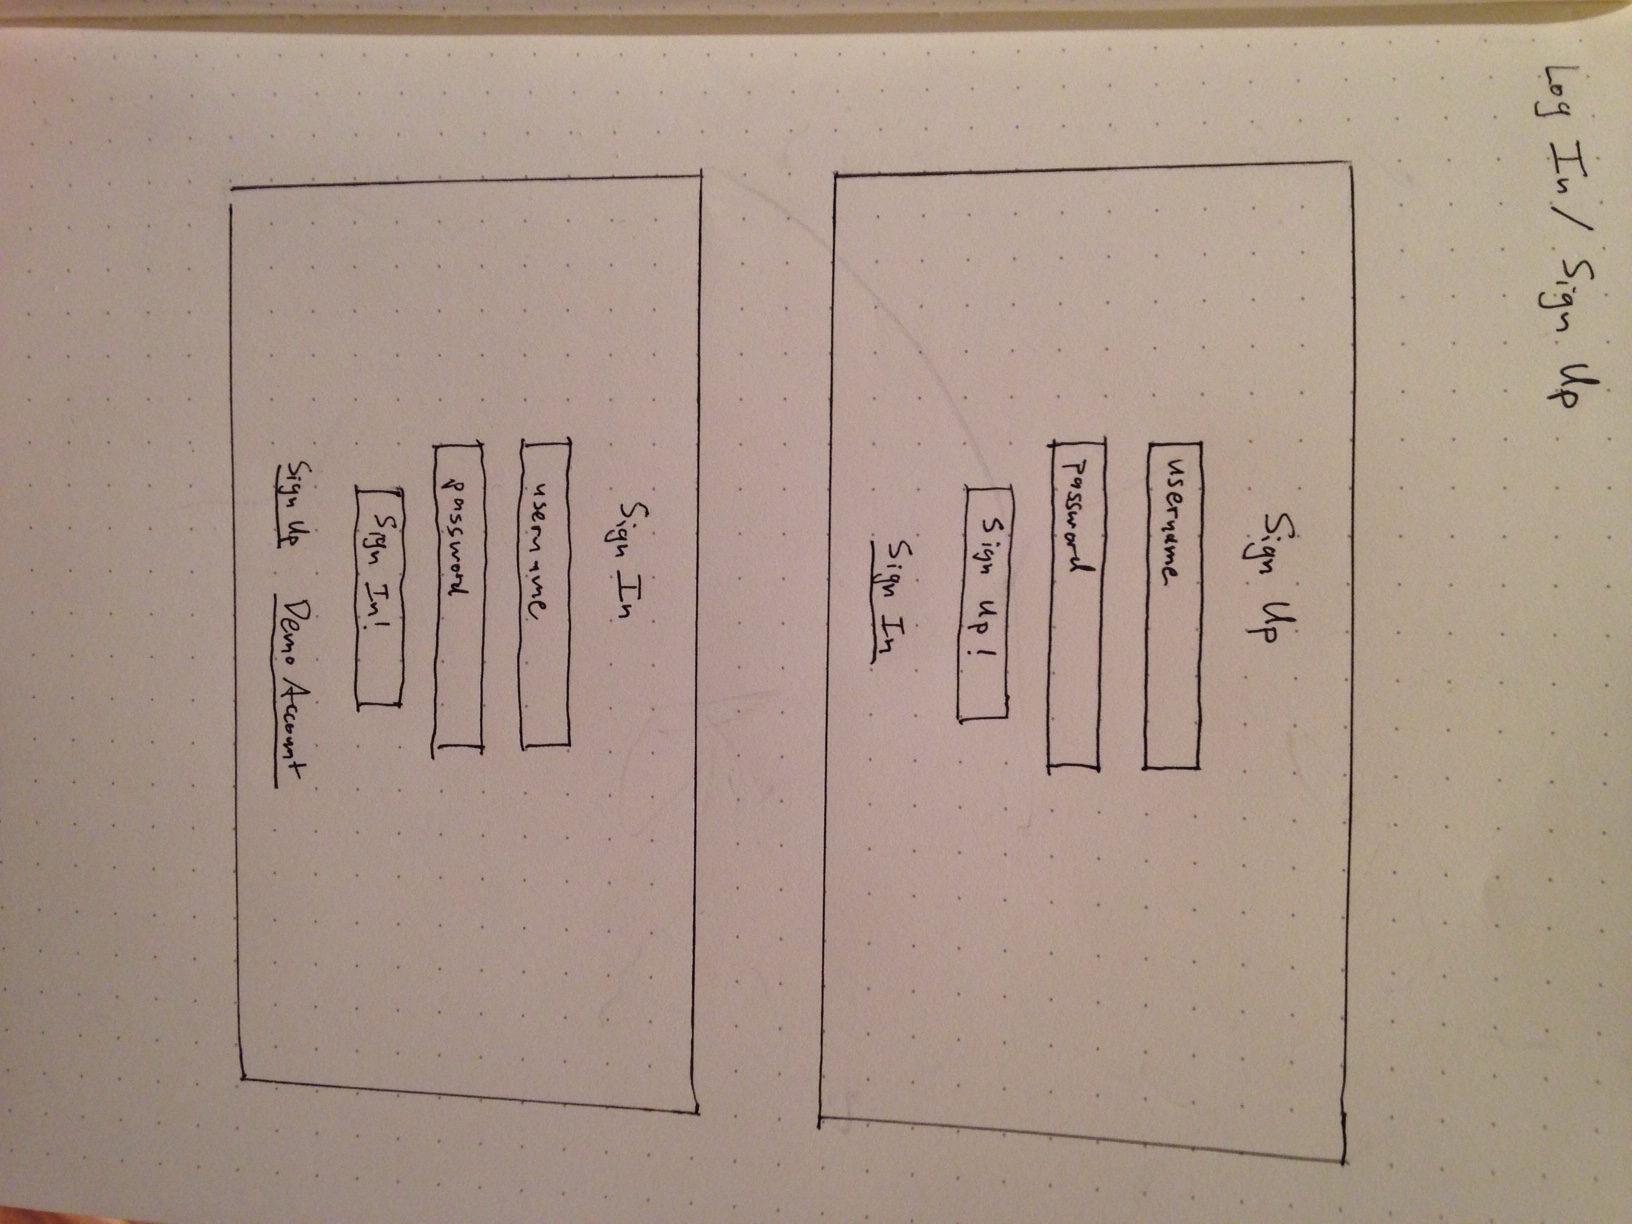 Log In / Sign Up
Sign Up
username
password
Sign Up!
Sign In
Sign In
username
password
Sign In!
Sign Up Demo Account